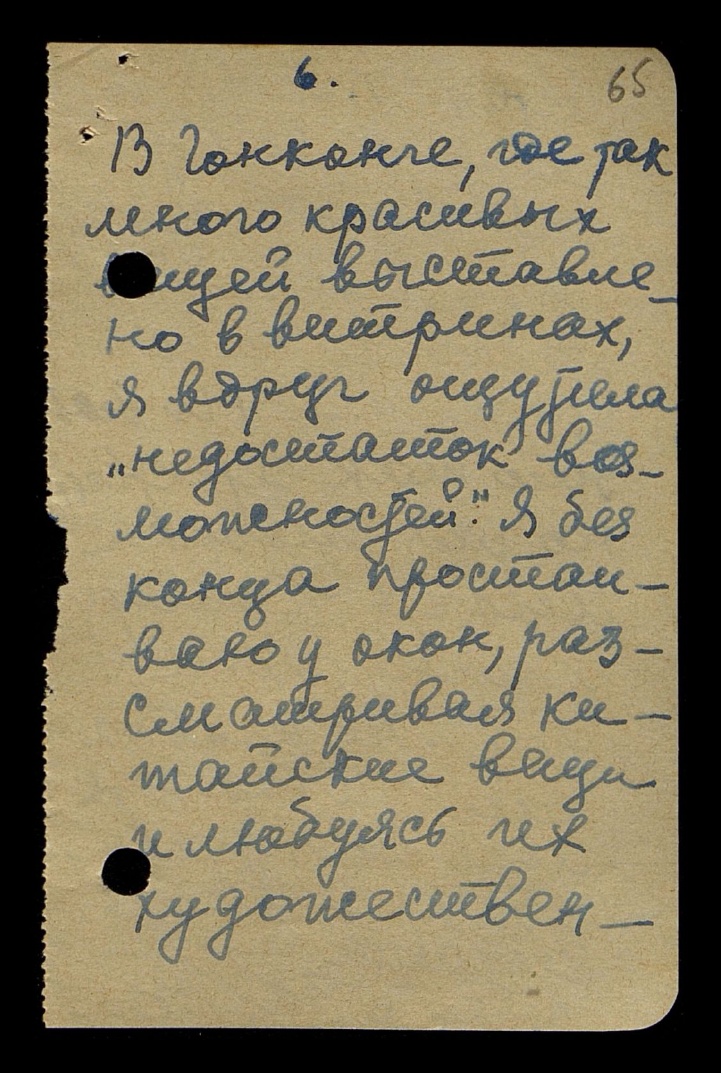 6. 65
В Гонконге, где так
много красивых
вещей выставле-
но в витринах,
я вдруг ощутила
„недостаток воз-
можностей." Я без
конца простаи-
ваю у окон, раз-
сматривая ки-
тайские вещи
и любуясь их
художествен-